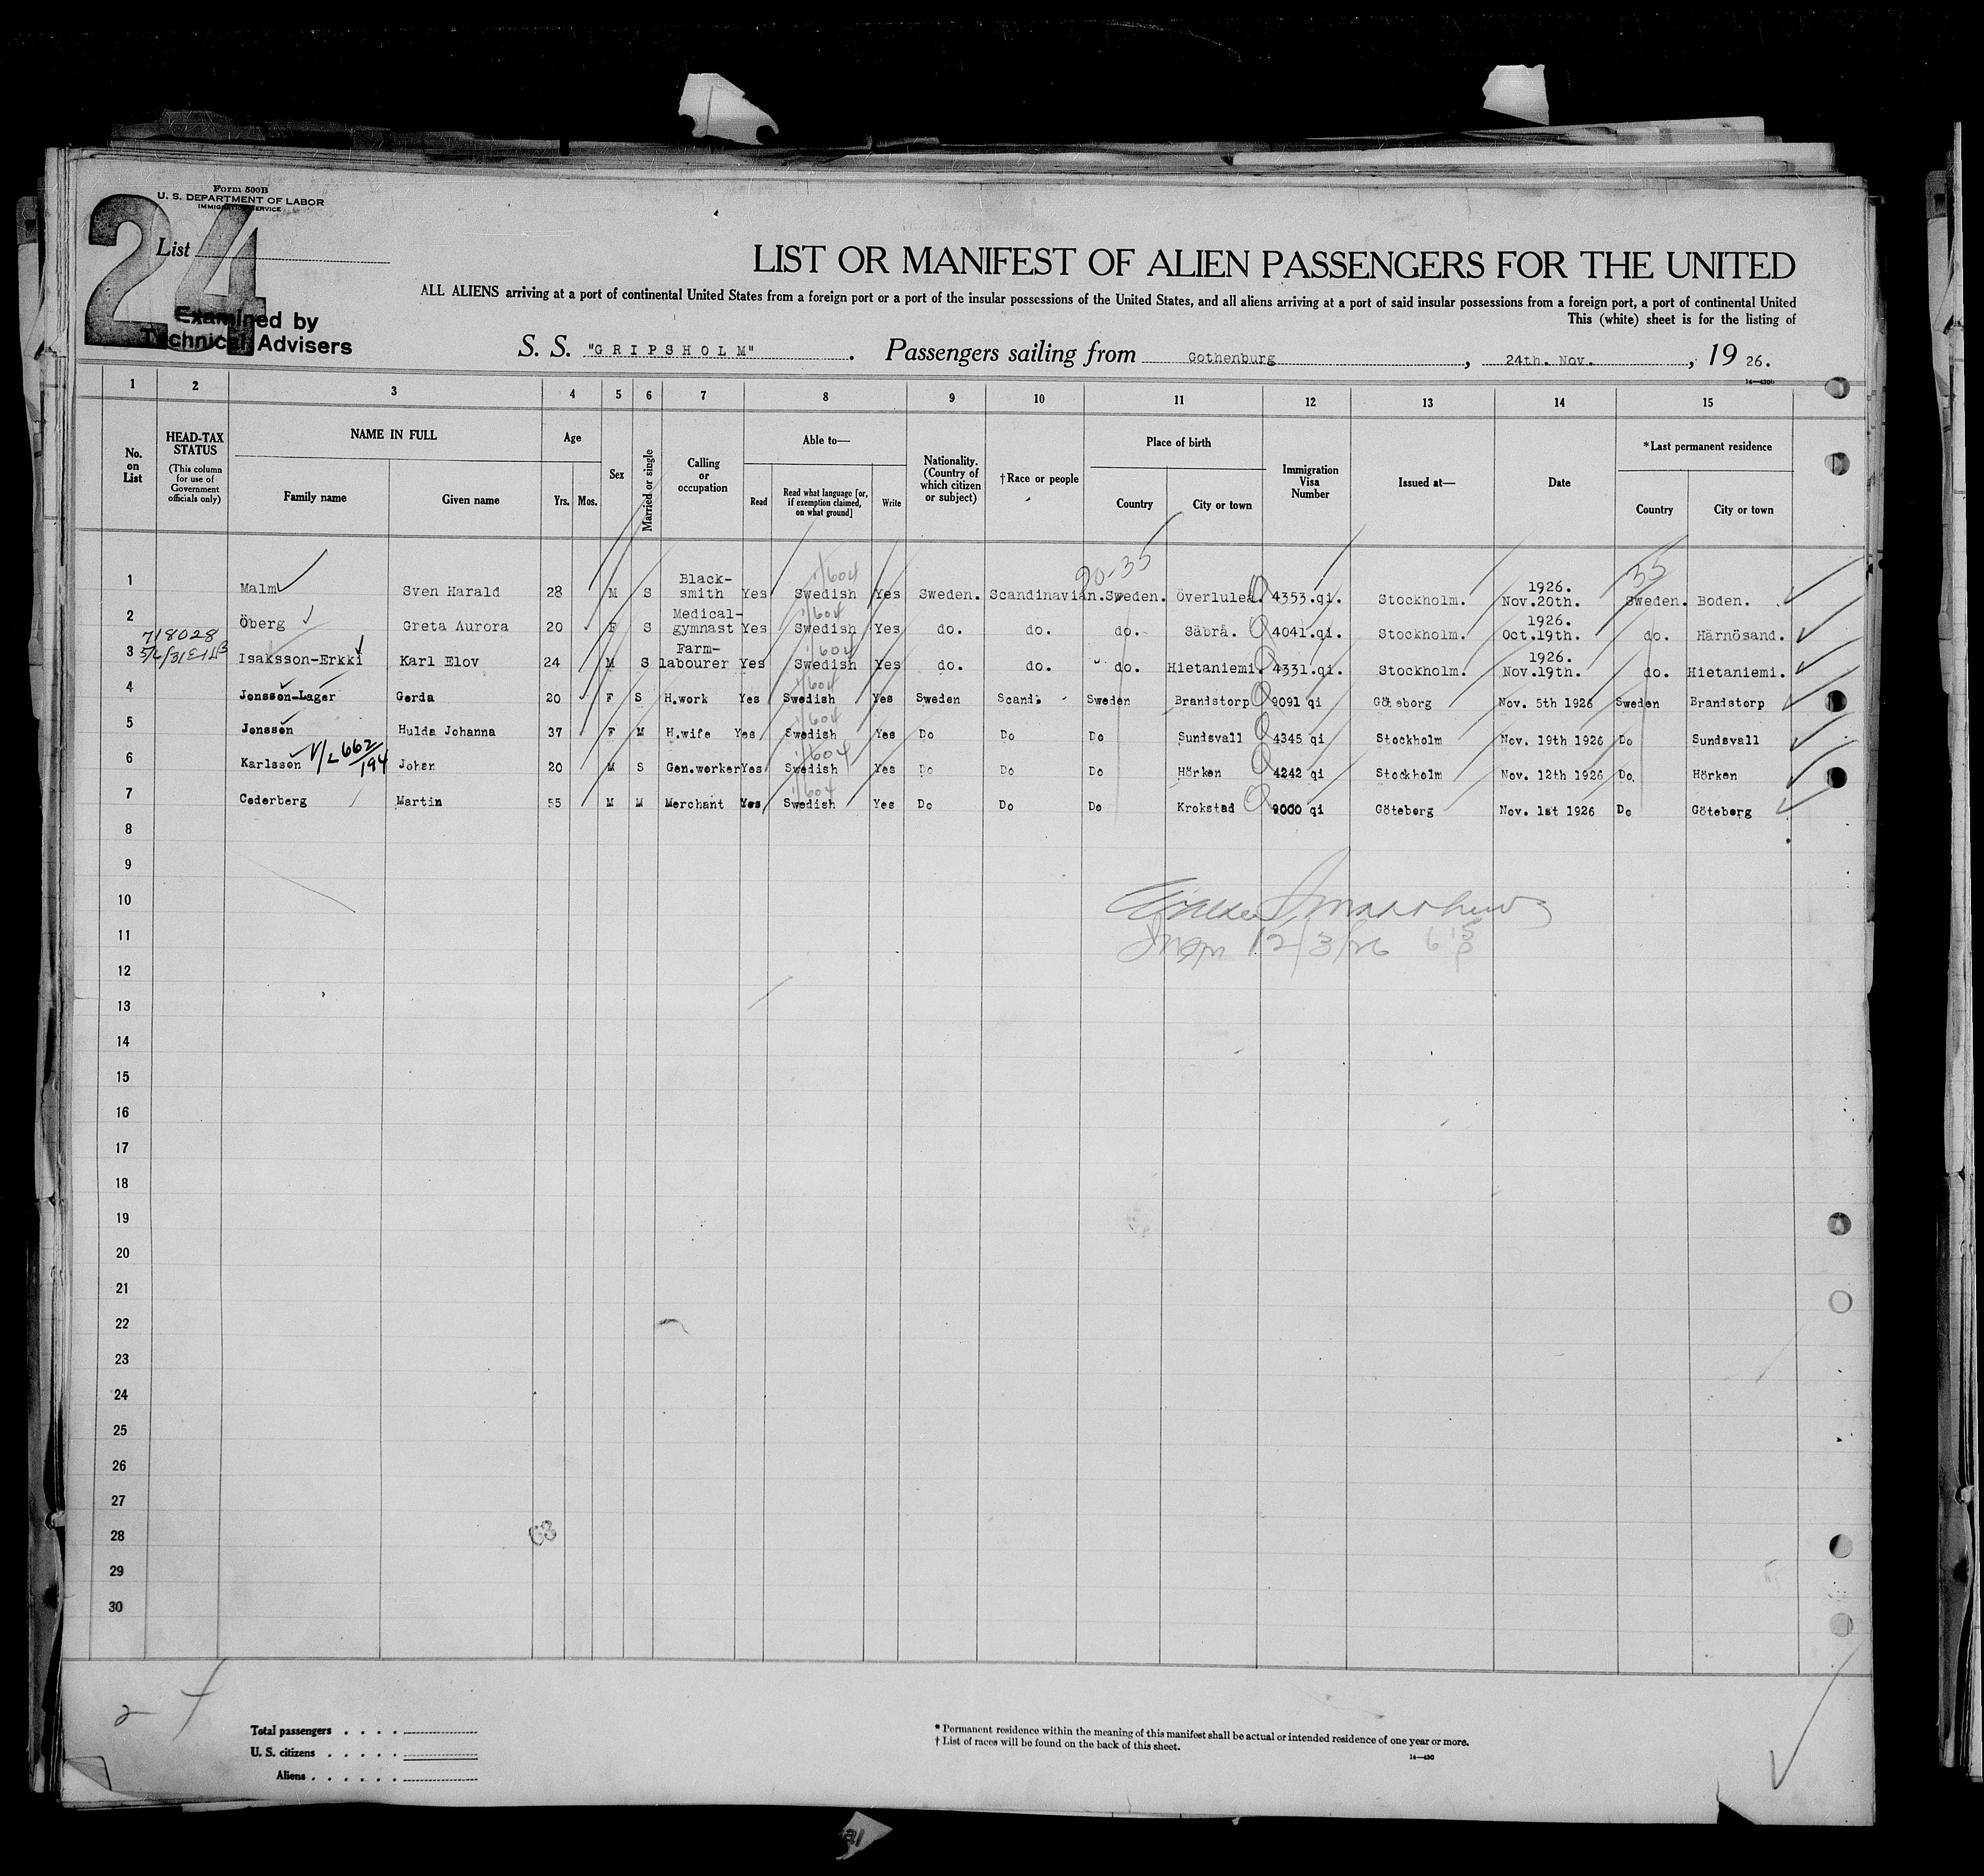 Form 500B
U. S. DEPARTMENT OF LABOR
IMMIGRATION SERVICE
24
List
Examined by
Technical Advisers
LIST OR MANIFEST OF ALIEN PASSENGERS FOR THE UNITED
ALL ALIENS arriving at a port of continental United States from a foreign port or a port of the insular possessions of the United States, and all aliens arriving at a port of said insular possessions from a foreign port, a port of continental United
This (white) sheet is for the listing of
S. S. "GRIPSHOLM". Passengers sailing from Gothenburg, 24th. Nov., 19 26.
1 2 3 4 5 6 7 8 9 10 11 12 13 14 15
No. on List
HEAD-TAX STATUS (This column for use of Government officials only)
NAME IN FULL
Family name Given name
Age
Yrs. Mos.
Sex
Married or single
Calling or occupation
Able to—
Read Read what language [or, if exemption claimed, on what ground] Write
Nationality. (Country of which citizen or subject)
†Race or people
Place of birth
Country City or town
Immigration Visa Number
Issued at—
Date
*Last permanent residence
Country City or town
90-35 35
1 Malm Sven Harald 28 M S Black-smith Yes Swedish 1/604 Yes Sweden. Scandinavian. Sweden. Överluleå. 4353.qi. Stockholm. 1926. Nov.20th. Sweden. Boden.
2 Öberg Greta Aurora 20 F S Medical-gymnast Yes Swedish 1/604 Yes do. do. do. Säbrå. 4041.qi. Stockholm. 1926. Oct.19th. do. Härnösand.
718028
3 Isaksson-Erkki Karl Elov 24 M S Farm-labourer Yes Swedish 1/604 Yes do. do. do. Hietaniemi. 4331.qi. Stockholm. 1926. Nov.19th. do. Hietaniemi.
4 Jonsson-Lager Gerda 20 F S H.work Yes Swedish 1/604 Yes Sweden Scand. Sweden Brandstorp 9091 qi Göteborg Nov. 5th 1926 Sweden Brandstorp
5 Jonsson Hulda Johanna 37 F M H.wife Yes Swedish 1/604 Yes Do Do Do Sundsvall 4345 qi Stockholm Nov. 19th 1926 Do Sundsvall
6 Karlsson V/L 662/194 Johan 20 M S Gen.worker Yes Swedish 1/604 Yes Do Do Do Hörken 4242 qi Stockholm Nov. 12th 1926 Do. Hörken
7 Cederberg Martin 55 M M Merchant Yes Swedish 1/604 Yes Do Do Do Krokstad 9000 qi Göteborg Nov. 1st 1926 Do Göteborg
8
9
10
11 12/3/26
12
13
14
15
16
17
18
19
20
21
22
23
24
25
26
27
28
29
30
24
Total passengers
U. S. citizens
Aliens
* Permanent residence within the meaning of this manifest shall be actual or intended residence of one year or more.
† List of races will be found on the back of this sheet.
14—430